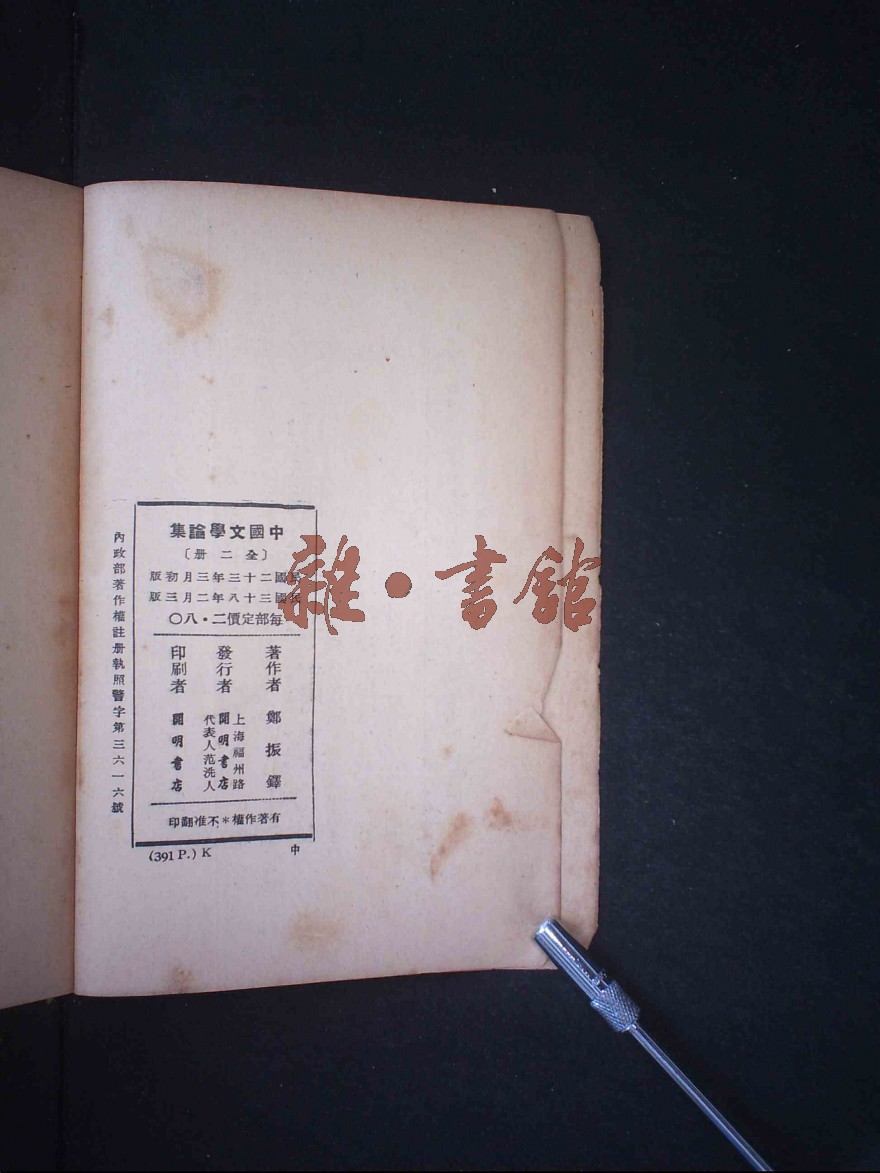 中國文學論集
〔全二册〕
民國二十三年三月初版
民國三十八年二月三版
每部定價二・八〇
著作者 鄭振鐸
發行者 上海福州路
開明書店
代表人范洗人
印刷者 開明書店
有著作權＊不准翻印
(391 P.) K 中
內政部著作權註册執照警字第三六一六號
雜・書館